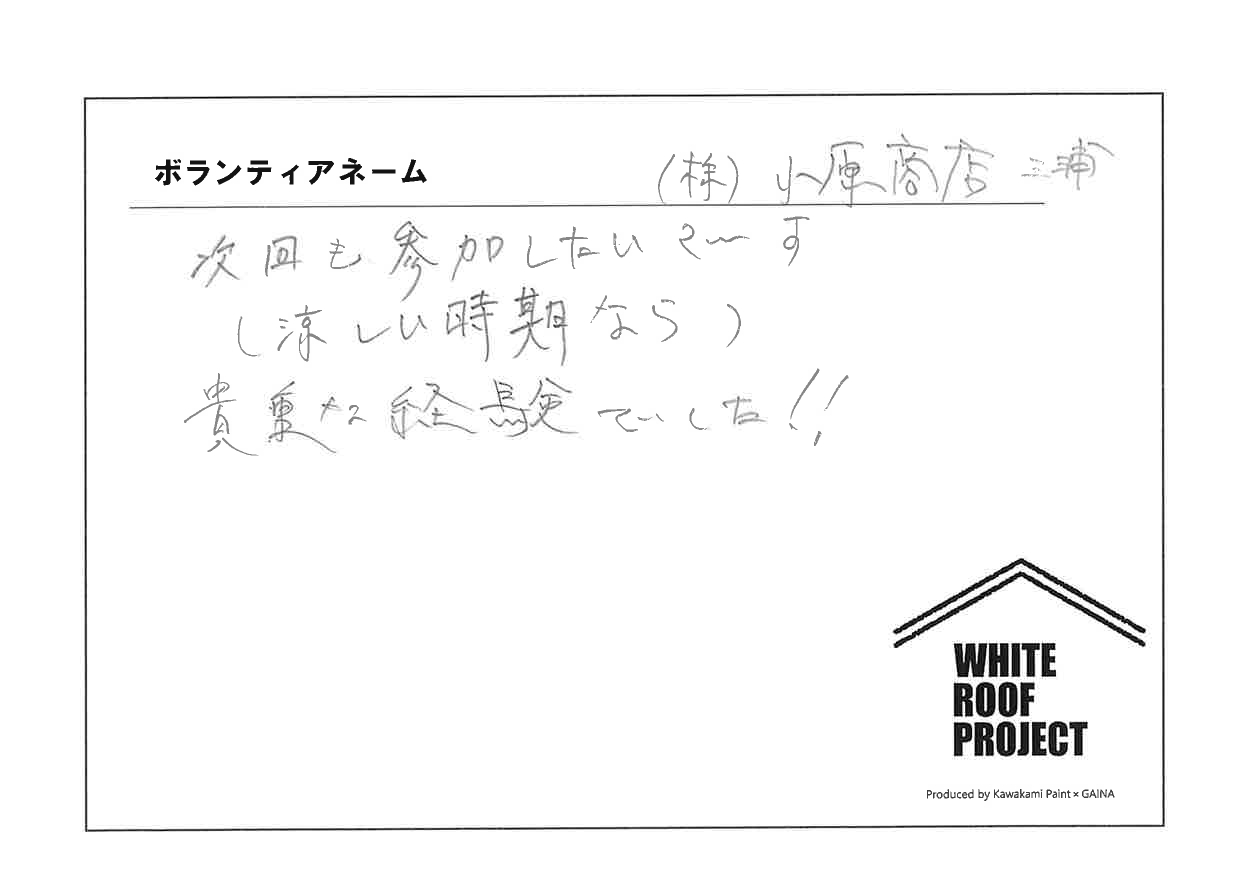 ボランティアネーム (株)小原商店 三浦
次回も参加したいで〜す
(涼しい時期なら)
貴重な経験でした!!
WHITE
ROOF
PROJECT
Produced by Kawakami Paint × GAINA